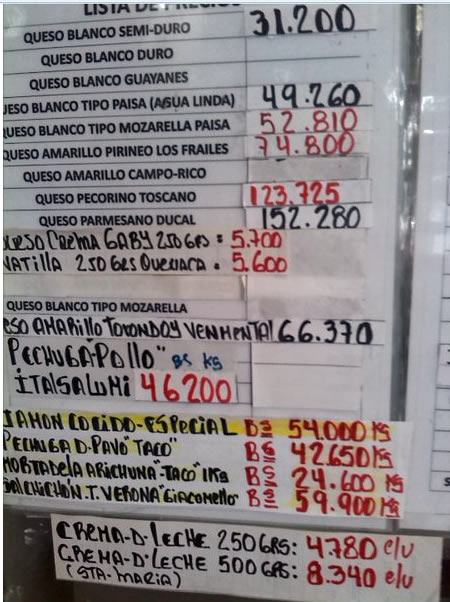 LISTA DE PRECIOS
QUESO BLANCO SEMI-DURO 31.200
QUESO BLANCO DURO
QUESO BLANCO GUAYANES
UESO BLANCO TIPO PAISA (AGUA LINDA) 49.260
QUESO BLANCO TIPO MOZARELLA PAISA 52.810
QUESO AMARILLO PIRINEO LOS FRAILES 74.800
QUESO AMARILLO CAMPO-RICO
QUESO PECORINO TOSCANO 123.725
QUESO PARMESANO DUCAL 152.280
QUESO CREMA GABY 250 GRS = 5.700
NATILLA 250 GRS QUENACA = 5.600
QUESO BLANCO TIPO MOZARELLA
ESO AMARILLO TORONDOY VENMENTAL 66.370
PECHUGA-POLLO" BS KG
ITALSALUMI 46200
JAMON COCIDO-ESPECIAL BS 54.000 KG
PECHUGA D-PAVO "TACO" BS 42.650 KG
MORTADELA ARICHUNA-"TACO" 1KG BS 24.600 KG
SALCHICHON.T. VERONA "GIACOMELLO" BS 59.900 KG
CREMA-D-LECHE 250 GRS: 4780 c/u
CREMA-D-LECHE 500 GRS: 8.340 c/u
(STA-MARIA)